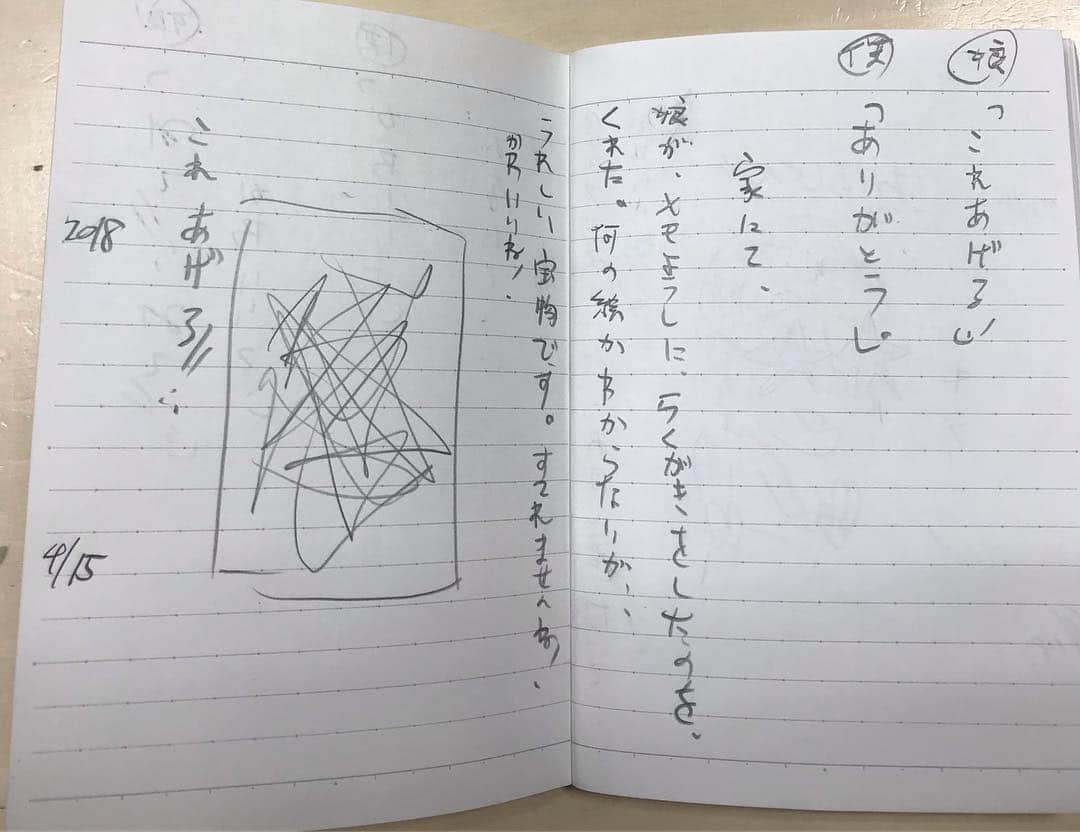 娘「これあげる」
僕「ありがとう」
家にて、
娘が、メモようしに、らくがきをしたのを、
くれた。何の絵かわからないが、
うれしい宝物です。すてれませんね、
かわいいね、
これあげる//
2018
4/15